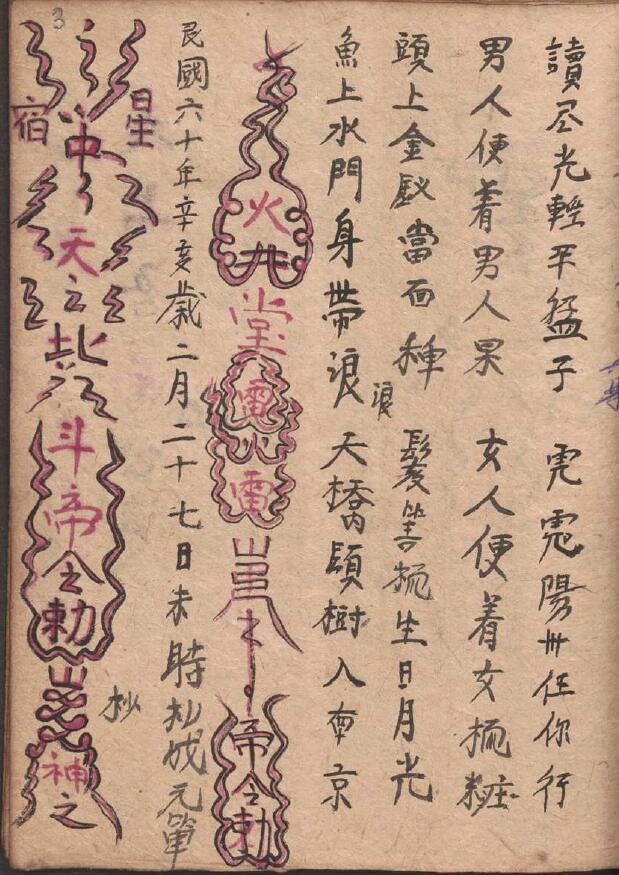 讀 光輕平猛子 陽卅任你行
男人便着男人果 女人便着女梳粧
頭上金釵當面種 髮 梳生日月光
魚上水門身帶浪浪 天橋 樹入南京
火
堂雷火雷
帝令勅
民國六十年辛亥歲二月二十七日未時抄成元
抄
星
中天之北斗帝令勅
神之
宿
3